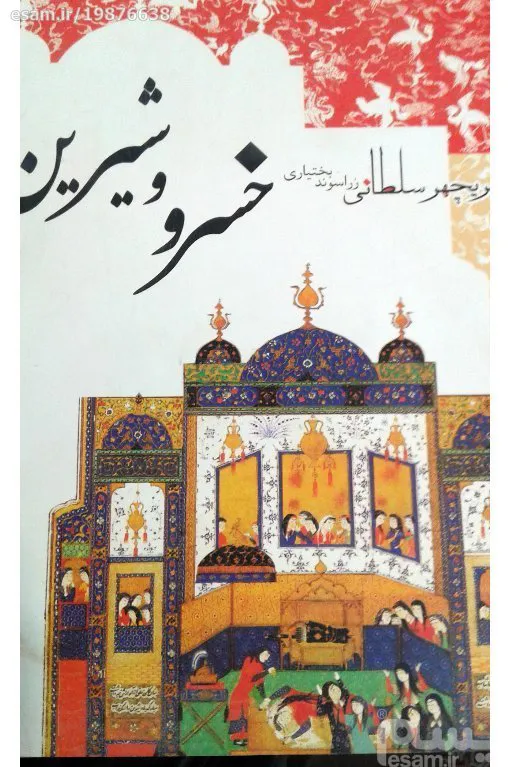 esam.ir/19876638
خسرو و شیرین
ریچهر سلطانی
زراسوند بختیاری
esam.ir